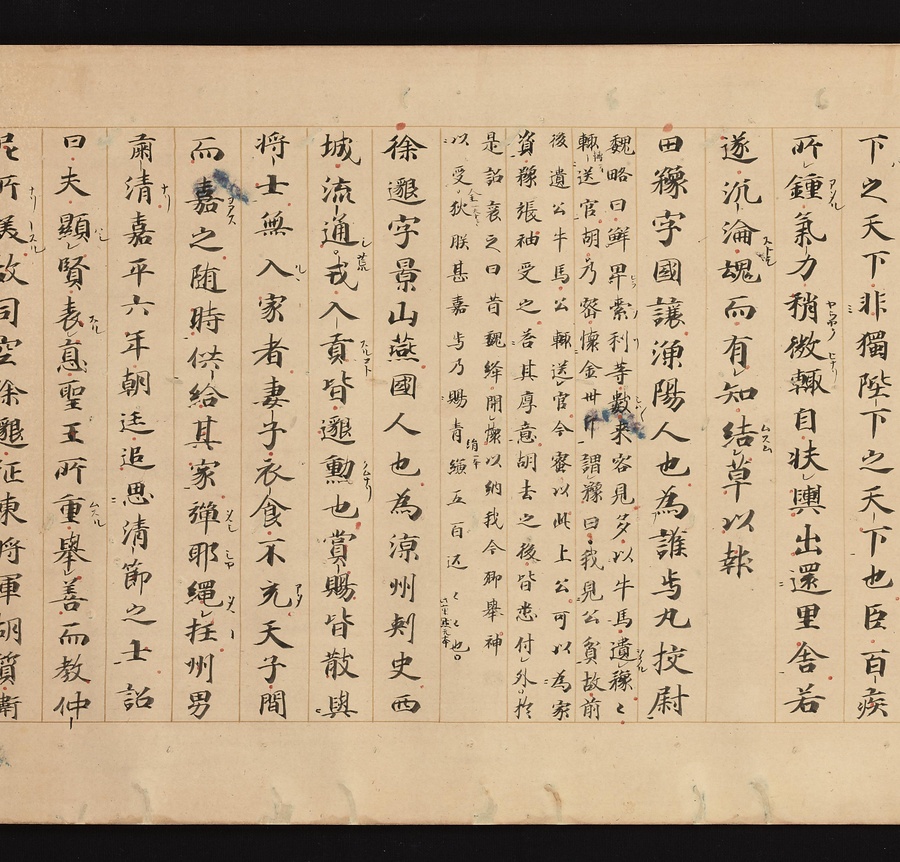 下之天下非獨陛下之天下也臣百疾
所鍾氣力稍微輒自扶輿出還里舍若
遂沉淪魂而有知結草以報
田豫字國讓漁陽人也為護烏丸挍尉
魏略曰鮮卑素利等數來客見多以牛馬遺豫〻
輒送官胡乃密懷金卅斤謂豫曰我見公貧故前
後遺公牛馬公輒送官今密以此上公可以為家
資豫張袖受之荅其厚意胡去之後皆悉付外於
是詔裒之曰昔魏絳開懷以納我今卿舉袖
以受狄朕甚嘉焉乃賜青縑五百迊〻〻也
徐邈字景山燕國人也為涼州刾史西
城流通戎入貢皆邈勲也賞賜皆散與
将士無入家者妻子衣食不充天子聞
而嘉之随時供給其家弾耶繩抂州男
肅清嘉平六年朝廷追思清節之士詔
曰夫顯賢表悳聖王所重舉善而教仲
尼所美故司空徐邈征東将軍胡質衛